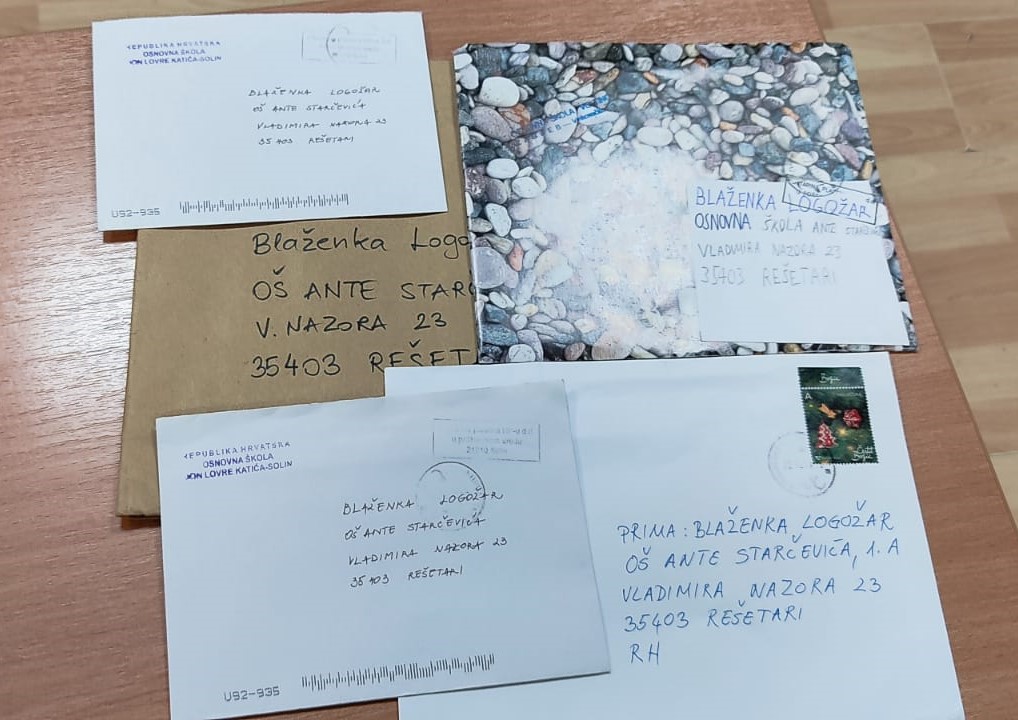 REPUBLIKA HRVATSKA
OSNOVNA ŠKOLA
DON LOVRE KATIĆA-SOLIN
BLAŽENKA LOGOŽAR
OŠ ANTE STARČEVIĆA
VLADIMIRA NAZORA 23
35403 REŠETARI
U92-935
Blaženka Logo
OŠ ANTE STARČ
V. NAZORA 23
35403 REŠET
BLAŽENKA LOGOŽAR
OSNOVNA ŠKOLA ANTE
VLADIMIRA NAZORA 23
35403 REŠETARI
REPUBLIKA HRVATSKA
OSNOVNA ŠKOLA
DON LOVRE KATIĆA-SOLIN
BLAŽENKA LOGOŽAR
OŠ ANTE STARČEVIĆA
VLADIMIRA NAZORA 23
35403 REŠETARI
U92-935
A
PRIMA: BLAŽENKA LOGOŽAR
OŠ ANTE STARČEVIĆA, 1. A
VLADIMIRA NAZORA 23
35403 REŠETARI
RH